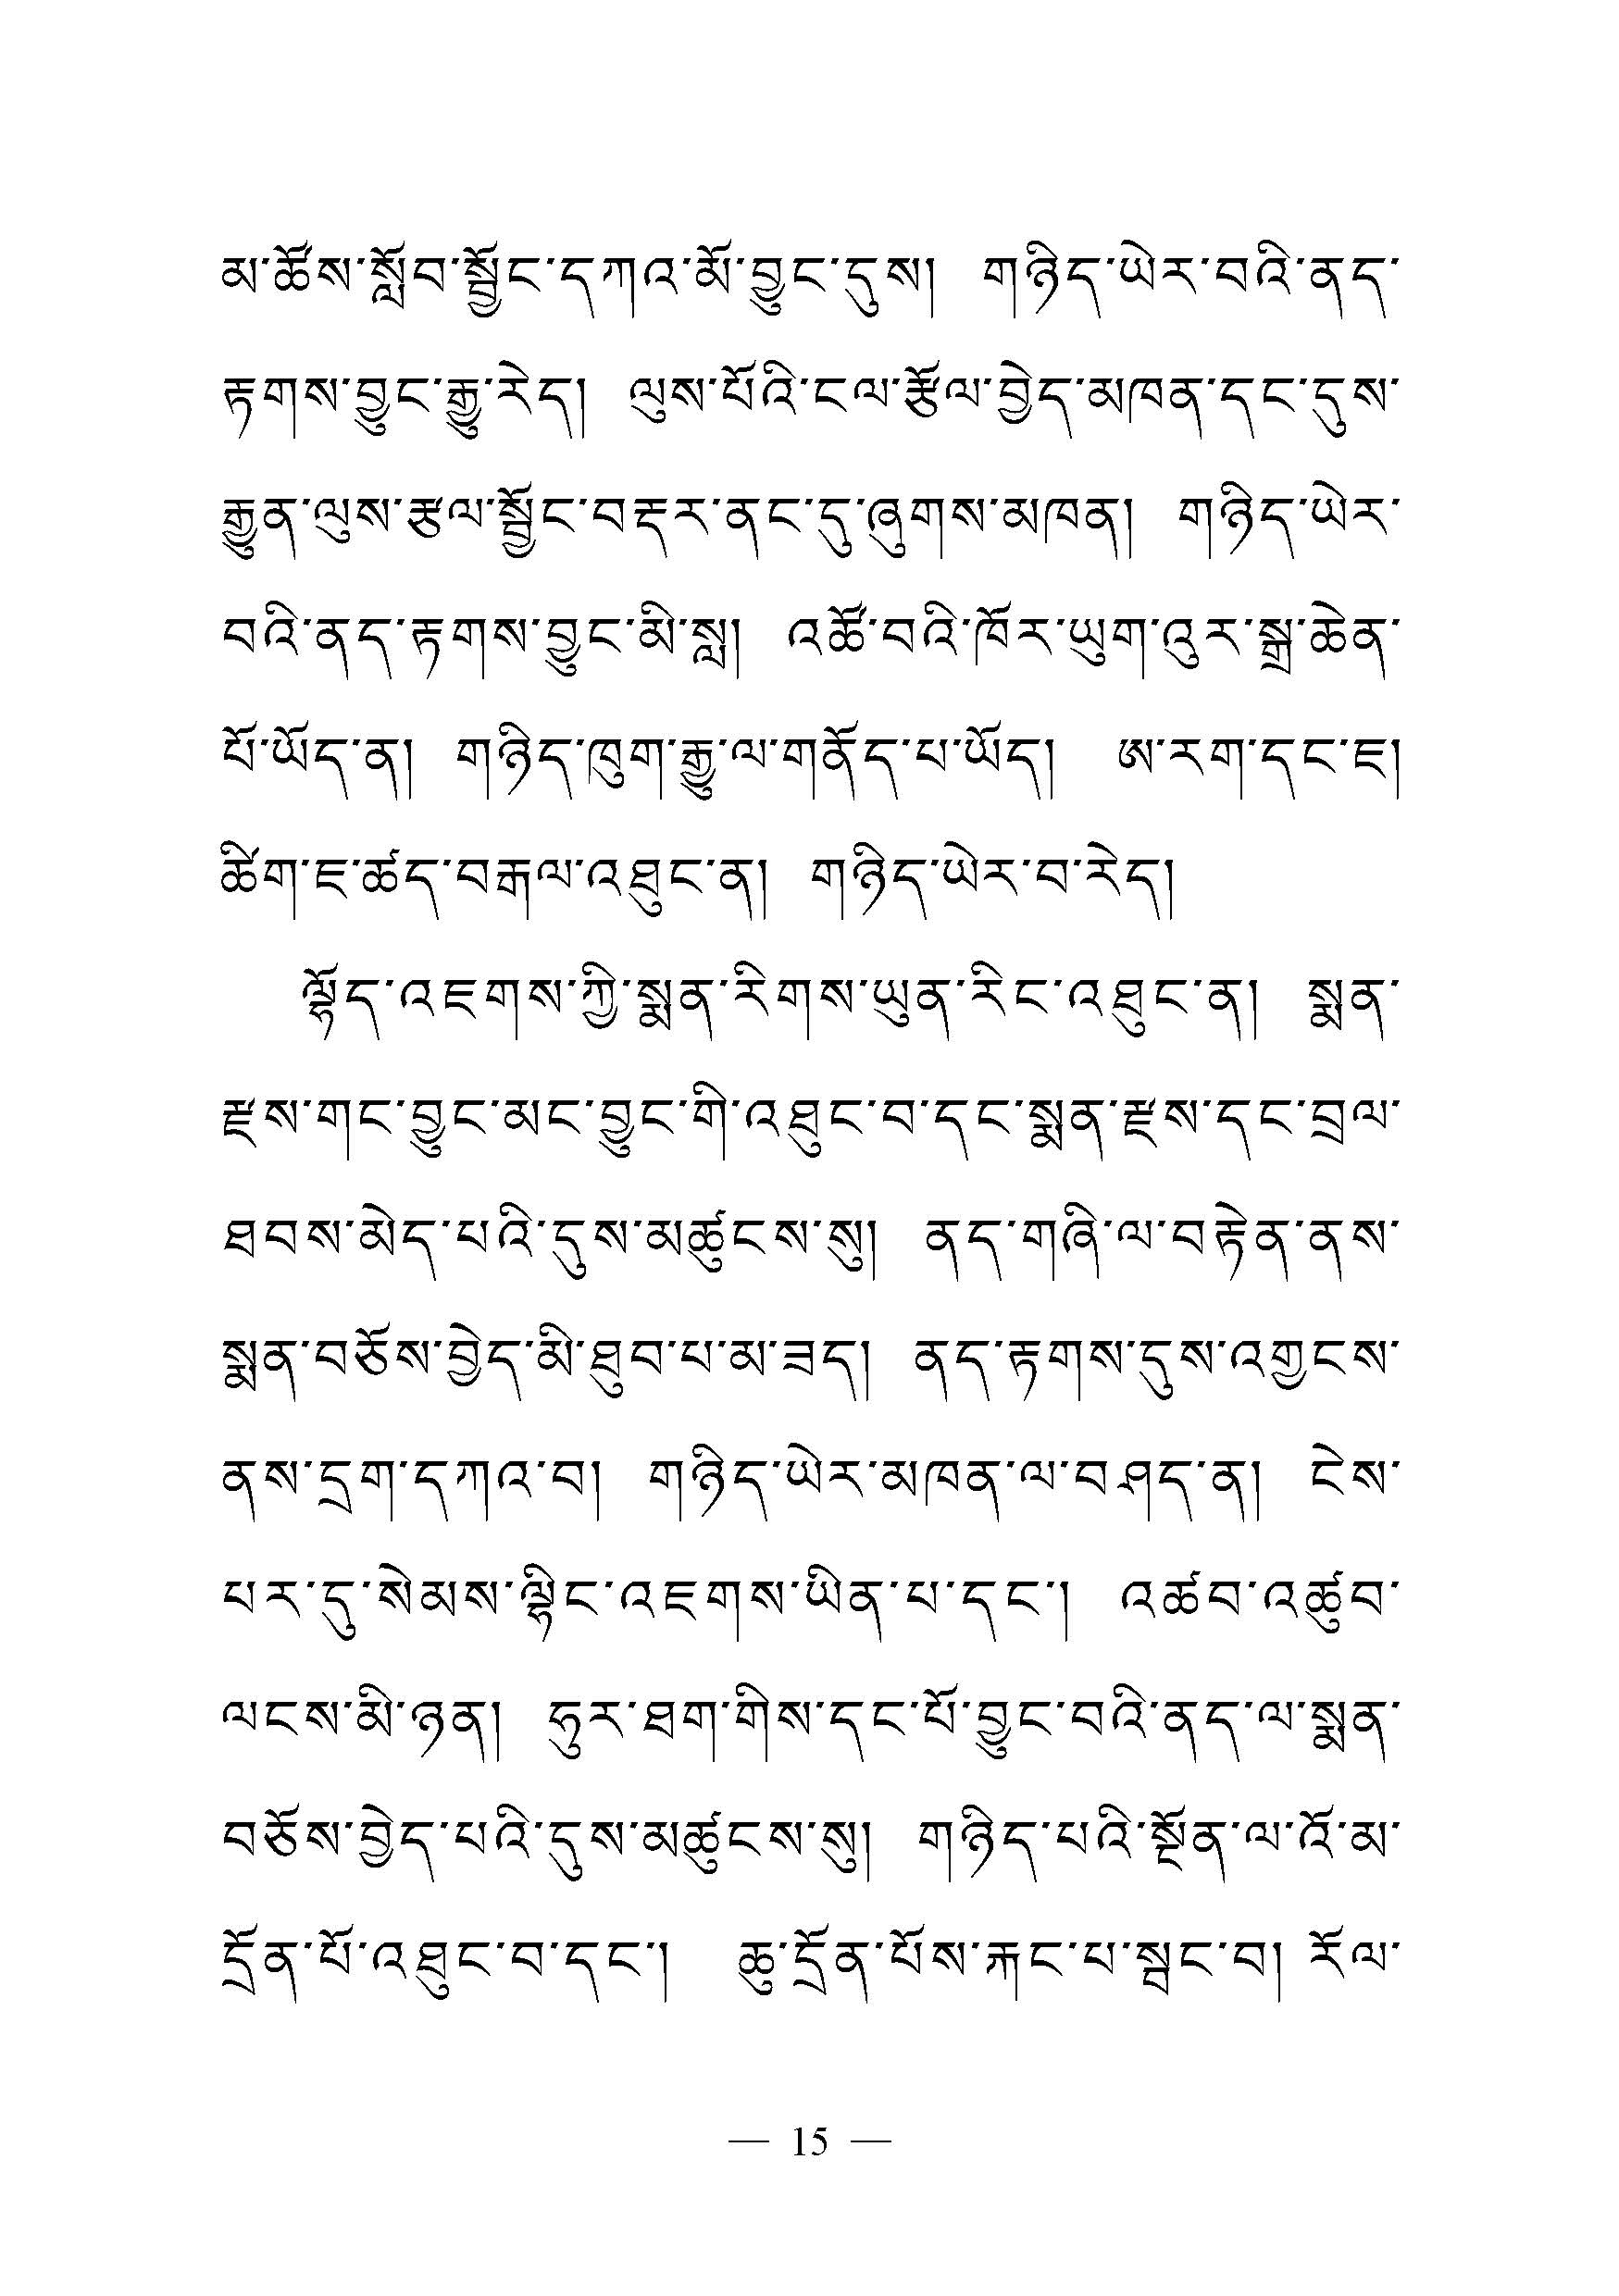 མ་ཚོས་སློབ་སྦྱོང་དཀའ་མོ་བྱུང་དུས། གཉིད་ཡེར་བའི་ནད་
རྟགས་བྱུང་རྒྱུ་རེད། ལུས་པོའི་ངལ་རྩོལ་བྱེད་མཁན་དང་དུས་
རྒྱུན་ལུས་རྩལ་སྦྱོང་བརྡར་ནང་དུ་ཞུགས་མཁན། གཉིད་ཡེར་
བའི་ནད་རྟགས་བྱུང་མི་སླ། འཚོ་བའི་ཁོར་ཡུག་འུར་སྒྲ་ཆེན་
པོ་ཡོད་ན། གཉིད་ཁུག་རྒྱུ་ལ་གནོད་པ་ཡོད། ཨ་རག་དང་ཇ།
ཚིག་ཇ་ཚད་བརྒལ་འཐུང་ན། གཉིད་ཡེར་བ་རེད།
ལྷོད་འཇགས་ཀྱི་སྨན་རིགས་ཡུན་རིང་འཐུང་ན། སྨན་
རྫས་གང་བྱུང་མང་བྱུང་གི་འཐུང་བ་དང་སྨན་རྫས་དང་བྲལ་
ཐབས་མེད་པའི་དུས་མཚུངས་སུ། ནད་གཞི་ལ་བརྟེན་ནས་
སྨན་བཅོས་བྱེད་མི་ཐུབ་པ་མ་ཟད། ནད་རྟགས་དུས་འགྱངས་
ནས་དྲག་དཀའ་བ། གཉིད་ཡེར་མཁན་ལ་བཤད་ན། ངེས་
པར་དུ་སེམས་ལྷིང་འཇགས་ཡིན་པ་དང་། འཚབ་འཚུབ་
ལངས་མི་ཉན། ཧུར་ཐག་གིས་དང་པོ་བྱུང་བའི་ནད་ལ་སྨན་
བཅོས་བྱེད་པའི་དུས་མཚུངས་སུ། གཉིད་པའི་སྔོན་ལ་འོ་མ་
དྲོན་པོ་འཐུང་བ་དང་། ཆུ་དྲོན་པོས་རྐང་པ་སྦང་བ། རོལ་
— 15 —